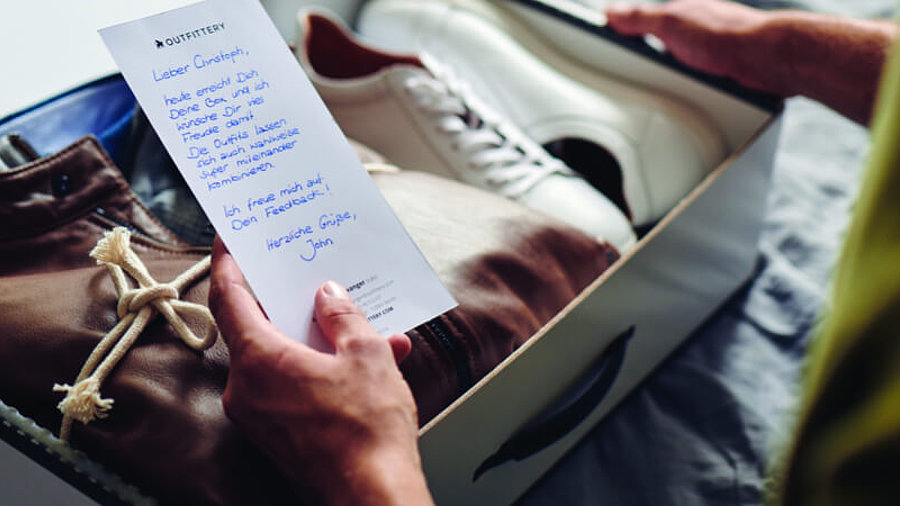 OUTFITTERY
Lieber Christoph,
heute erreicht Dich
Deine Box und ich
wünsche Dir viel
Freude damit.
Die Outfits lassen
sich auch wahlweise
super miteinander
kombinieren.
Ich freue mich auf
Dein Feedback!
Herzliche Grüße,
John